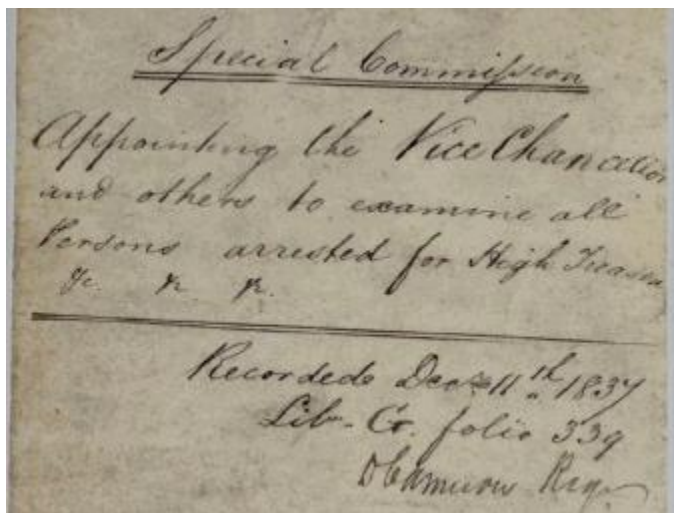 Special Commission
Appointing the Vice Chancellor
and others to examine all
Persons arrested for High Treason
&c. &c. &c.
Recorded Decr 11th 1837
Lib. Cr. folio 339
D Cameron Regr